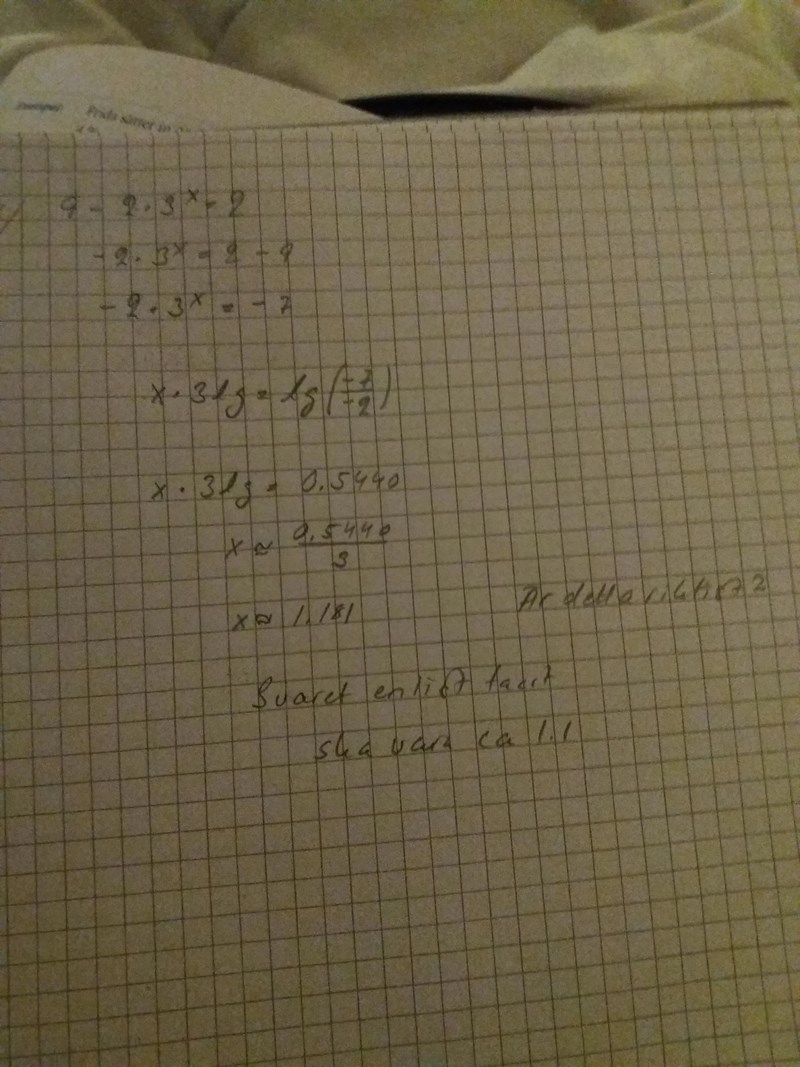 9 - 2 · 3^x = 2
-2 · 3^x = 2 - 9
-2 · 3^x = -7
x · 3lg = lg(-7/-2)
x · 3lg = 0.5440
x ≈ 0.5440/3
x ≈ 1.181
Är detta riktigt?
Svaret enligt facit
ska vara ca 1.1